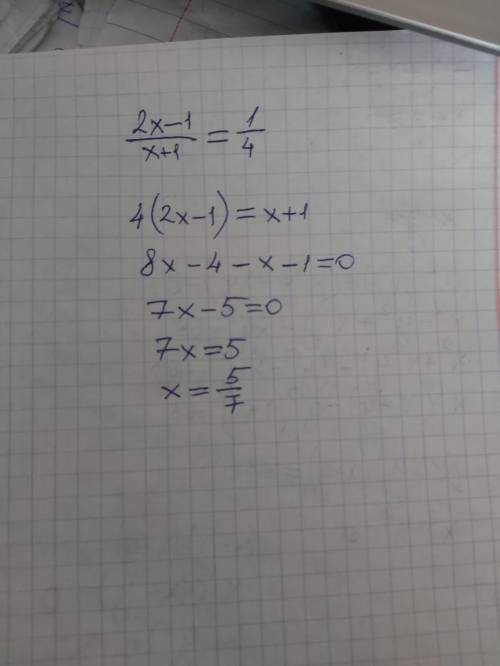 2x-1/x+1 = 1/4
4(2x-1)=x+1
8x-4-x-1=0
7x-5=0
7x=5
x=5/7